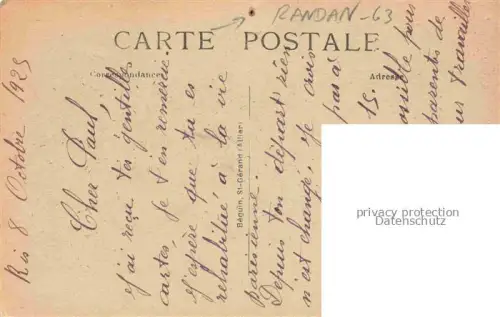 RANDAN-63
CARTE POSTALE
Correspondance
Adresse
Ris 8 Octobre 1925
Cher Paul,
J'ai reçu tes gentilles
cartes, je t'en remercie
J'espère que tu es
rehabitué à la vie
parisienne.
Depuis ton départ rien
n'est changé. Je crois
pas à
15.
pour
parents de
travailles
Béguin, St-Gérand (Allier)
privacy protection
Datenschutz